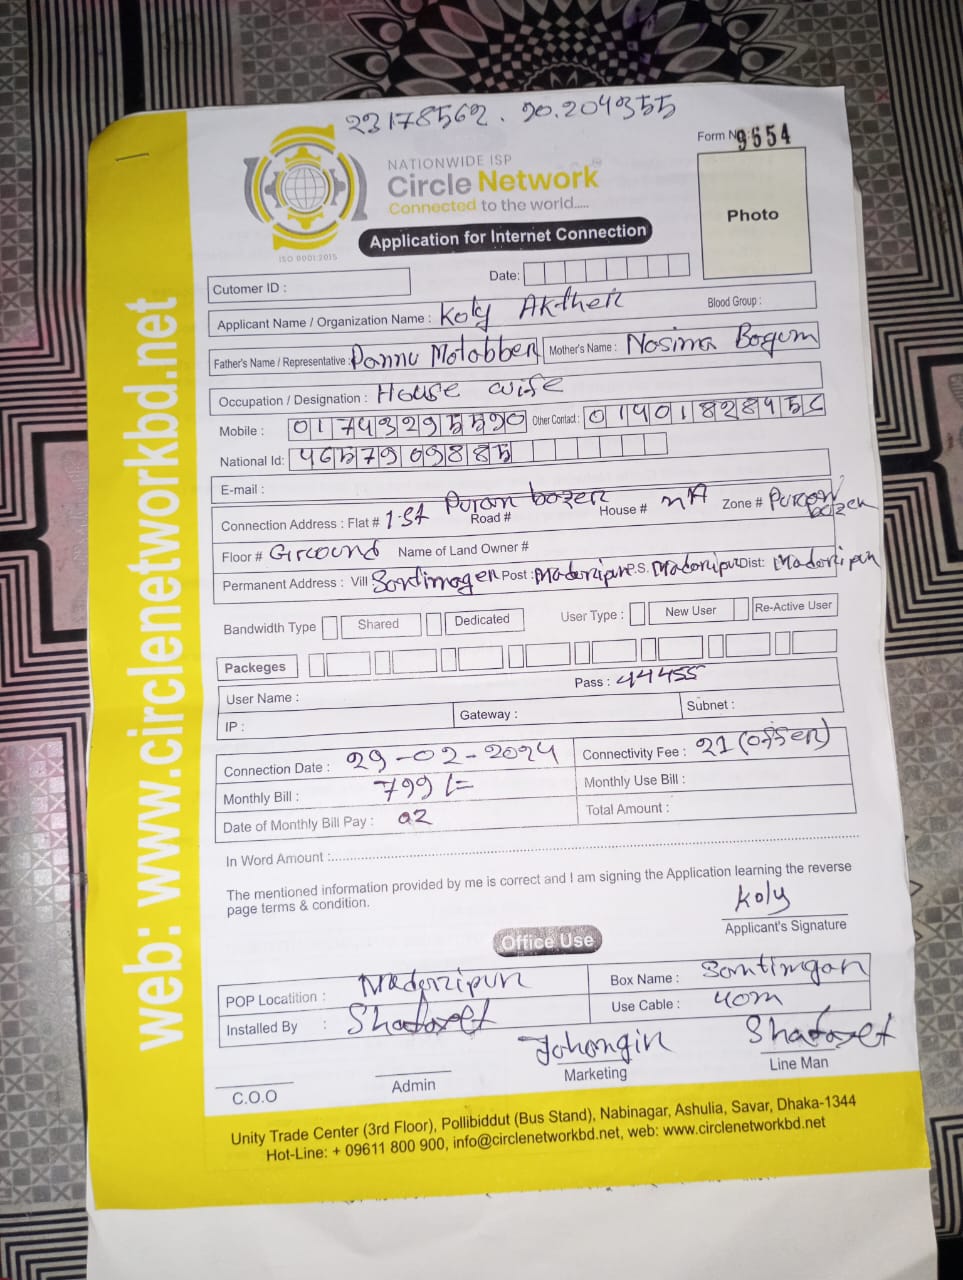 23178562. 20.204355
Form No 9554
NATIONWIDE ISP
Circle Network
Connected to the world.....
ISO 9001:2015
Photo
Application for Internet Connection
Cutomer ID :
Date:
Applicant Name / Organization Name : Koly Akther
Blood Group :
Father's Name / Representative : Pannu Motobber Mother's Name : Nosima Bogum
Occupation / Designation : House wife
Mobile : 01743295590 Other Contact : 0140182845
National Id: 4657909885
E-mail :
Connection Address : Flat # 1st Puran bazer Road # House # nA Zone # Puran bazer
Floor # Ground Name of Land Owner #
Permanent Address : Vill Post : Madaripur P.S. Madoripur Dist: Madoripur
Bandwidth Type Shared Dedicated User Type : New User Re-Active User
Packeges
User Name : Pass : 44455
IP : Gateway : Subnet :
Connection Date : 29-02-2024 Connectivity Fee : 21 (offer)
Monthly Bill : 799/= Monthly Use Bill :
Date of Monthly Bill Pay : 02 Total Amount :
In Word Amount :
The mentioned information provided by me is correct and I am signing the Application learning the reverse
page terms & condition.
Koly
Applicant's Signature
Office Use
POP Locatition : Madaripur Box Name :
Installed By : Use Cable : 40m
Johongir
C.O.O Admin Marketing Line Man
Unity Trade Center (3rd Floor), Pollibiddut (Bus Stand), Nabinagar, Ashulia, Savar, Dhaka-1344
Hot-Line: + 09611 800 900, info@circlenetworkbd.net, web: www.circlenetworkbd.net
web: www.circlenetworkbd.net